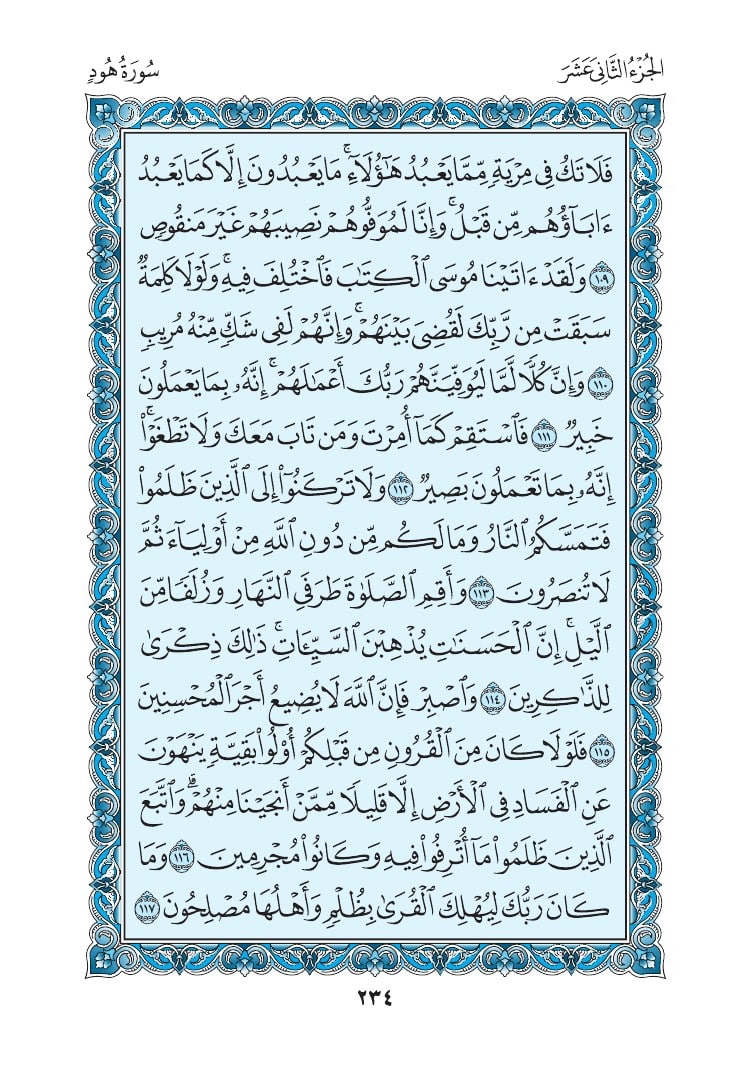 الجُزْءُ الثَّانِيَ عَشَرَ
سُورَةُ هُودٍ
فَلَا تَكُ فِى مِرْيَةٍ مِّمَّا يَعْبُدُ هَٰٓؤُلَآءِۚ مَا يَعْبُدُونَ إِلَّا كَمَا يَعْبُدُ
ءَابَآؤُهُم مِّن قَبْلُۚ وَإِنَّا لَمُوَفُّوهُمْ نَصِيبَهُمْ غَيْرَ مَنقُوصٍ
١٠٩ وَلَقَدْ ءَاتَيْنَا مُوسَى ٱلْكِتَٰبَ فَٱخْتُلِفَ فِيهِۚ وَلَوْلَا كَلِمَةٌ
سَبَقَتْ مِن رَّبِّكَ لَقُضِىَ بَيْنَهُمْۚ وَإِنَّهُمْ لَفِى شَكٍّ مِّنْهُ مُرِيبٍ
١١٠ وَإِنَّ كُلًّا لَّمَّا لَيُوَفِّيَنَّهُمْ رَبُّكَ أَعْمَٰلَهُمْۚ إِنَّهُۥ بِمَا يَعْمَلُونَ
خَبِيرٌ ١١١ فَٱسْتَقِمْ كَمَآ أُمِرْتَ وَمَن تَابَ مَعَكَ وَلَا تَطْغَوْا۟ۚ
إِنَّهُۥ بِمَا تَعْمَلُونَ بَصِيرٌ ١١٢ وَلَا تَرْكَنُوٓا۟ إِلَى ٱلَّذِينَ ظَلَمُوا۟
فَتَمَسَّكُمُ ٱلنَّارُ وَمَا لَكُم مِّن دُونِ ٱللَّهِ مِنْ أَوْلِيَآءَ ثُمَّ
لَا تُنصَرُونَ ١١٣ وَأَقِمِ ٱلصَّلَوٰةَ طَرَفَىِ ٱلنَّهَارِ وَزُلَفًا مِّنَ
ٱلَّيْلِۚ إِنَّ ٱلْحَسَنَٰتِ يُذْهِبْنَ ٱلسَّيِّـَٔاتِۚ ذَٰلِكَ ذِكْرَىٰ
لِلذَّٰكِرِينَ ١١٤ وَٱصْبِرْ فَإِنَّ ٱللَّهَ لَا يُضِيعُ أَجْرَ ٱلْمُحْسِنِينَ
١١٥ فَلَوْلَا كَانَ مِنَ ٱلْقُرُونِ مِن قَبْلِكُمْ أُو۟لُوا۟ بَقِيَّةٍ يَنْهَوْنَ
عَنِ ٱلْفَسَادِ فِى ٱلْأَرْضِ إِلَّا قَلِيلًا مِّمَّنْ أَنجَيْنَا مِنْهُمْۗ وَٱتَّبَعَ
ٱلَّذِينَ ظَلَمُوا۟ مَآ أُتْرِفُوا۟ فِيهِ وَكَانُوا۟ مُجْرِمِينَ ١١٦ وَمَا
كَانَ رَبُّكَ لِيُهْلِكَ ٱلْقُرَىٰ بِظُلْمٍ وَأَهْلُهَا مُصْلِحُونَ ١١٧
٢٣٤